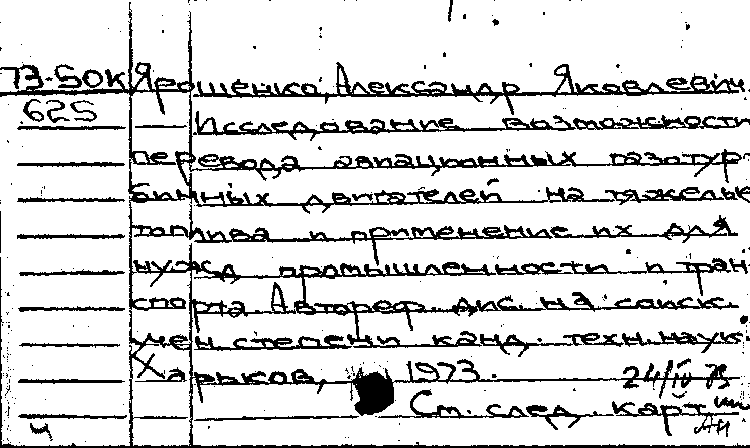 73-50К Ярошенко, Александр Яковлевич.
625 — Исследование возможности
перевода авиационных газотур-
бинных двигателей на тяжелые
топлива и применение их для
нужд промышленности и тран
спорта Автореф. дис. на соиск.
учен степени канд. техн. наук.
Харьков, 1973. 24/IV 73
См. след. карт
ч